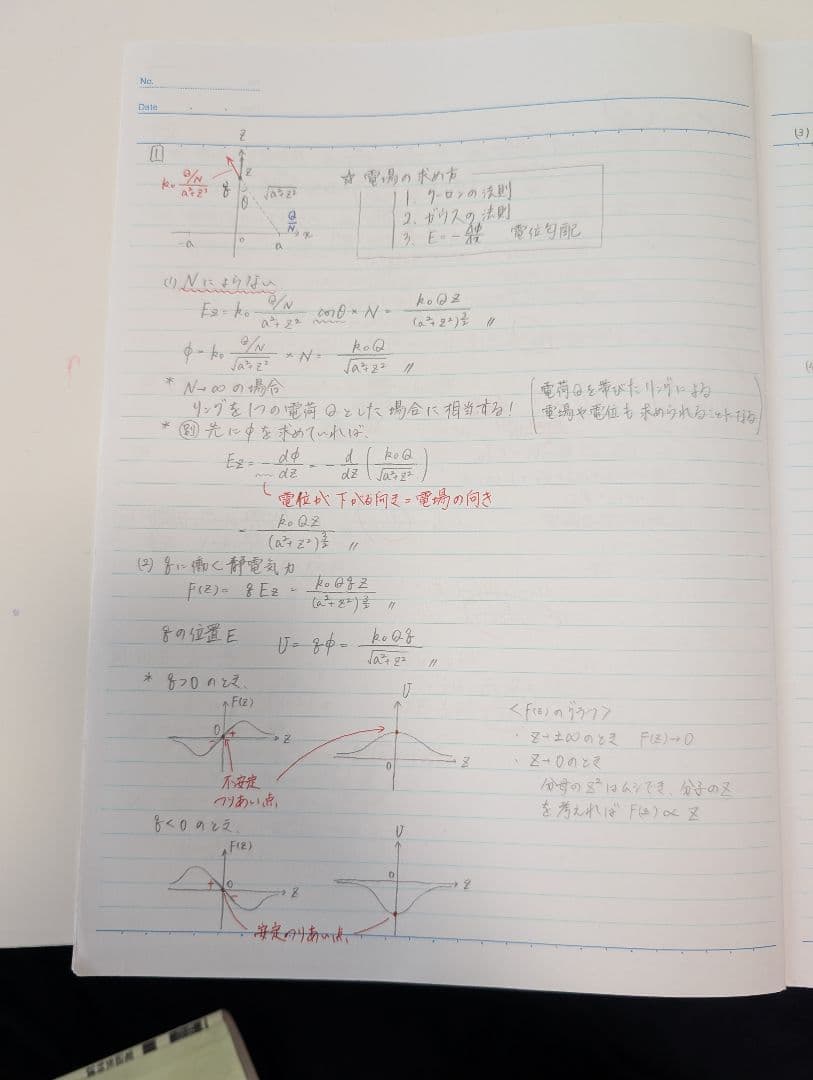 No.
Date
(3)
1
z
k₀ (Q/N)/(a²+z²)
z
q
θ
√a²+z²
Q/N
x
-a
0
a
☆ 電場の求め方
1. クーロンの法則
2. ガウスの法則
3. E = -dφ/dx 電位勾配
(1) Nによらない
Ez = k₀ (Q/N)/(a²+z²) cosθ × N = k₀Qz/(a²+z²)^(3/2) 〃
φ = k₀ (Q/N)/√a²+z² × N = k₀Q/√a²+z² 〃
* N→∞の場合
リングを1つの電荷Qとした場合に相当する!
(電荷Qを帯びたリングによる
電場や電位も求められることになる)
* 別 先にφを求めていれば、
Ez = -dφ/dz = -d/dz (k₀Q/√a²+z²)
電位が下がる向き=電場の向き
= k₀Qz/(a²+z²)^(3/2) 〃
(2) qに働く静電気力
F(z) = qEz = k₀Qqz/(a²+z²)^(3/2) 〃
qの位置E U = qφ = k₀Qq/√a²+z² 〃
* q>0のとき、
F(z)
0
+
-
z
U
0
z
不安定
つりあい点、
<F(z)のグラフ>
・z→±∞のとき F(z)→0
・z→0のとき
分母のz²はムシでき、分子のz
を考えれば F(z)∝z
q<0のとき、
F(z)
+
0
-
z
U
0
z
安定つりあい点、